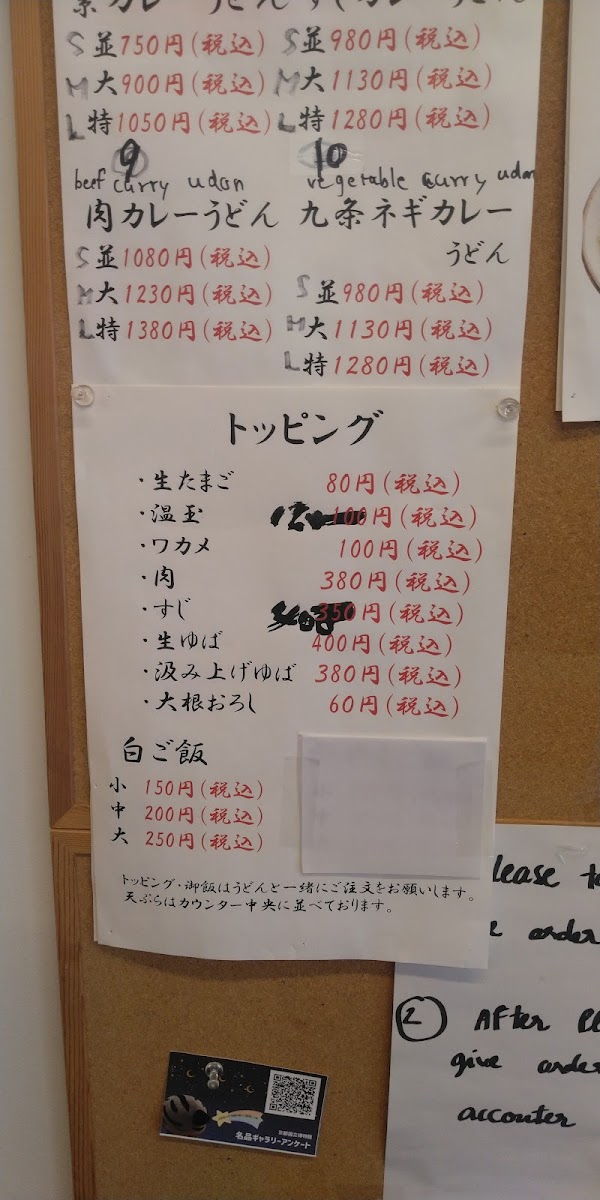 素カレーうどん すじカレーうどん
S 並 750円(税込) S 並 980円(税込)
M 大 900円(税込) M 大 1130円(税込)
L 特 1050円(税込) L 特 1280円(税込)
9 10
beef curry udon vegetable curry udon
肉カレーうどん 九条ネギカレー
うどん
S 並 1080円(税込)
M 大 1230円(税込) S 並 980円(税込)
L 特 1380円(税込) M 大 1130円(税込)
L 特 1280円(税込)
トッピング
・生たまご 80円(税込)
・温玉 100円(税込)
・ワカメ 100円(税込)
・肉 380円(税込)
・すじ 350円(税込)
・生ゆば 400円(税込)
・汲み上げゆば 380円(税込)
・大根おろし 60円(税込)
白ご飯
小 150円(税込)
中 200円(税込)
大 250円(税込)
トッピング・御飯はうどんと一緒にご注文をお願いします。
天ぷらはカウンター中央に並べております。
lease
order
② After
give order
accounter
京都国立博物館
名品ギャラリーアンケート